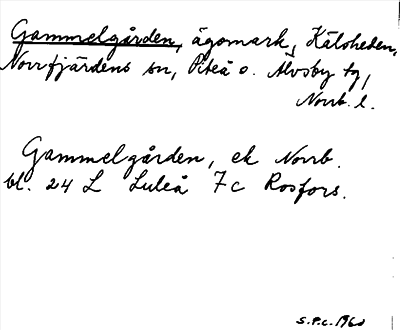 Gammelgården, ägomark, Kälsheden,
Norrfjärdens sn, Piteå o. Älvsby tg,
Norrb. l.
Gammelgården, ek Norrb.
bl. 24 L Luleå 7 c Rosfors.
S.P.C. 1960